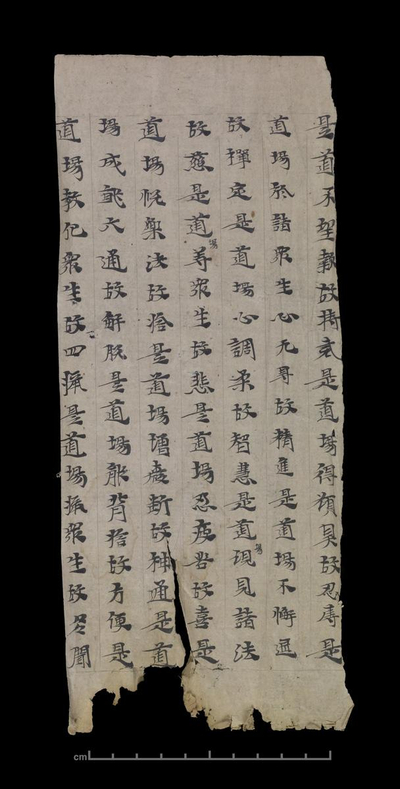 是道不望報故持戒是道場得願具故忍辱是
道場於諸眾生心无㝵故精進是道場不懈退
故禪定是道場心調柔故智慧是道場現見諸法
故慈是道場等眾生故悲是道場忍疲苦故喜是
道場悅樂法故捨是道場憎愛斷故神通是道
場成就六通故解脫是道場能背捨故方便是
道場教化眾生故四攝是道場攝眾生故多聞
cm